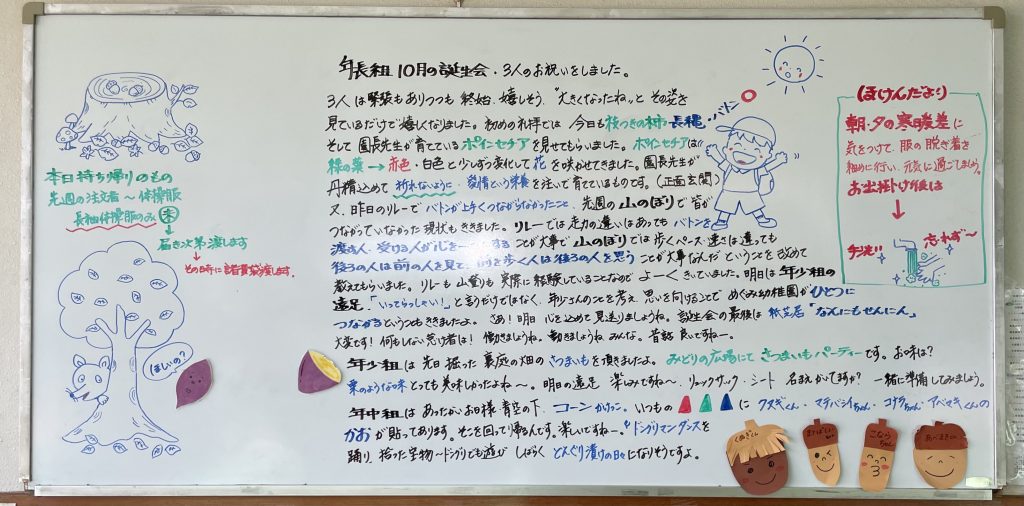 本日持ち帰りのもの
先週の注文者～体操服
長袖体操服のみ(木)
届き次第渡します
その時に諸費袋渡します。
ほしいの?
年長組 10月の誕生会・3人のお祝いをしました。
3人は緊張もありつつも 終始 嬉しそう、"大きくなったね〟と その姿を
見ているだけで嬉しくなりました。初めの礼拝では 今日も 枝つきの柿・長縄・バトン
そして 園長先生が育てている ポインセチア を見せてもらいました。ポインセチアは
緑の葉→赤色・白色と少しずつ変化して 花を咲かせてきました。園長先生が
丹精込めて 折れないように・愛情という栄養を注いで育てているものです。(正面玄関)
又、昨日のリレーで バトンが上手くつながらなかったこと、先週の 山のぼり で 皆が
つながっていなかった 現状も ききました。リレーでは 走力の違いはあっても バトンを
渡す人、受ける人が心を一つにする ことが大事で 山のぼりでは 歩くペース・速さは違っても
後ろの人は前の人を見て、前を歩く人は後ろの人を思う ことが大事なんだ ということを 改めて
教えてもらいました。リレーも 山登りも 実際に 経験していることなので よーく きいていました。明日は 年少組の
遠足、「いってらっしゃい!」と言うだけではなく、年少さんのことを考え 思いを向けることで めぐみ幼稚園が ひとつに
つながる ということも ききましたよ。さあ!明日 心を込めて 見送りましょうね。誕生会の最後は 紙芝居「なんにもせんにん」
大変です! 何もしない 怠け者は! 働きましょうね。動きましょうね みんな。昔話 良いですねー。
年少組は 先日 掘った 裏庭の畑の さつまいもを 頂きましたよ。みどりの広場にて さつまいもパーティーです。お味は?
栗のような味 とっても美味しかったよね～。明日の遠足 楽しみですね～、リュックサック・シート 名まえかいてますか? 一緒に準備してみましょう。
年中組は あったかいお日様・青空の下、コーンかけっこ。いつもの に クヌギくん・マテバシイちゃん・コナラちゃん・アベマキくんの
かお が貼ってあります。そこを回って帰るんです。楽しいですねー。"ドングリマンダンスを
踊り、拾った宝物～ドングリでも遊び しばらく どんぐり漬けの日々になりそうですよ。
ほけんだより
朝・夕の寒暖差に
気をつけて、服の脱ぎ着を
細めに行い、元気に過ごしましょう
お出掛け後は
手洗い 忘れず～
くぬぎくん
まてばしいちゃん
こならちゃん
あべまきくん